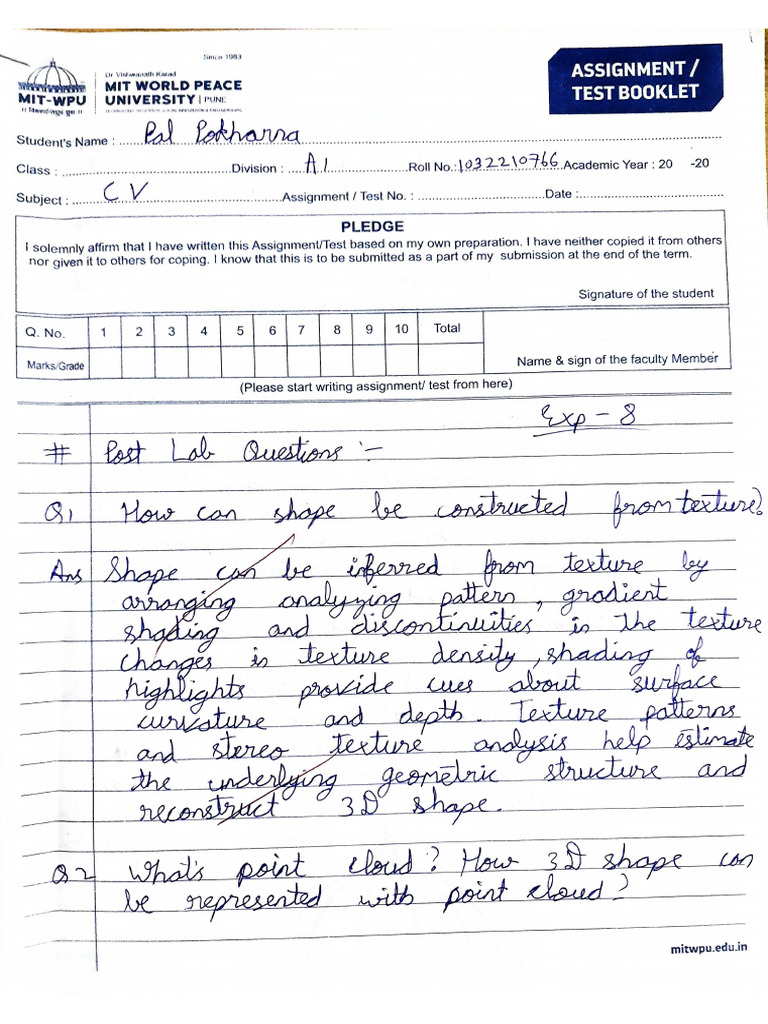 Since 1983
Dr. Vishwanath Karad
MIT WORLD PEACE
UNIVERSITY | PUNE
MIT-WPU
ASSIGNMENT /
TEST BOOKLET
Student's Name : Pal Pokharna
Class : Division : A1 Roll No.: 1032210766 Academic Year : 20 -20
Subject : CV Assignment / Test No. : Date :
PLEDGE
I solemnly affirm that I have written this Assignment/Test based on my own preparation. I have neither copied it from others
nor given it to others for coping. I know that this is to be submitted as a part of my submission at the end of the term.
Signature of the student
Q. No. 1 2 3 4 5 6 7 8 9 10 Total
Marks/Grade
Name & sign of the faculty Member
(Please start writing assignment/ test from here)
Exp - 8
# Post Lab Questions :-
Q1 How can shape be constructed from texture?
Ans Shape can be inferred from texture by
arranging analyzing pattern, gradient
shading and discontinuities in the texture
changes in texture density, shading of
highlights provide cues about surface
curvature and depth. Texture patterns
and stereo texture analysis help estimate
the underlying geometric structure and
reconstruct 3D shape.
Q2 What's point cloud? How 3D shape can
be represented with point cloud?
mitwpu.edu.in